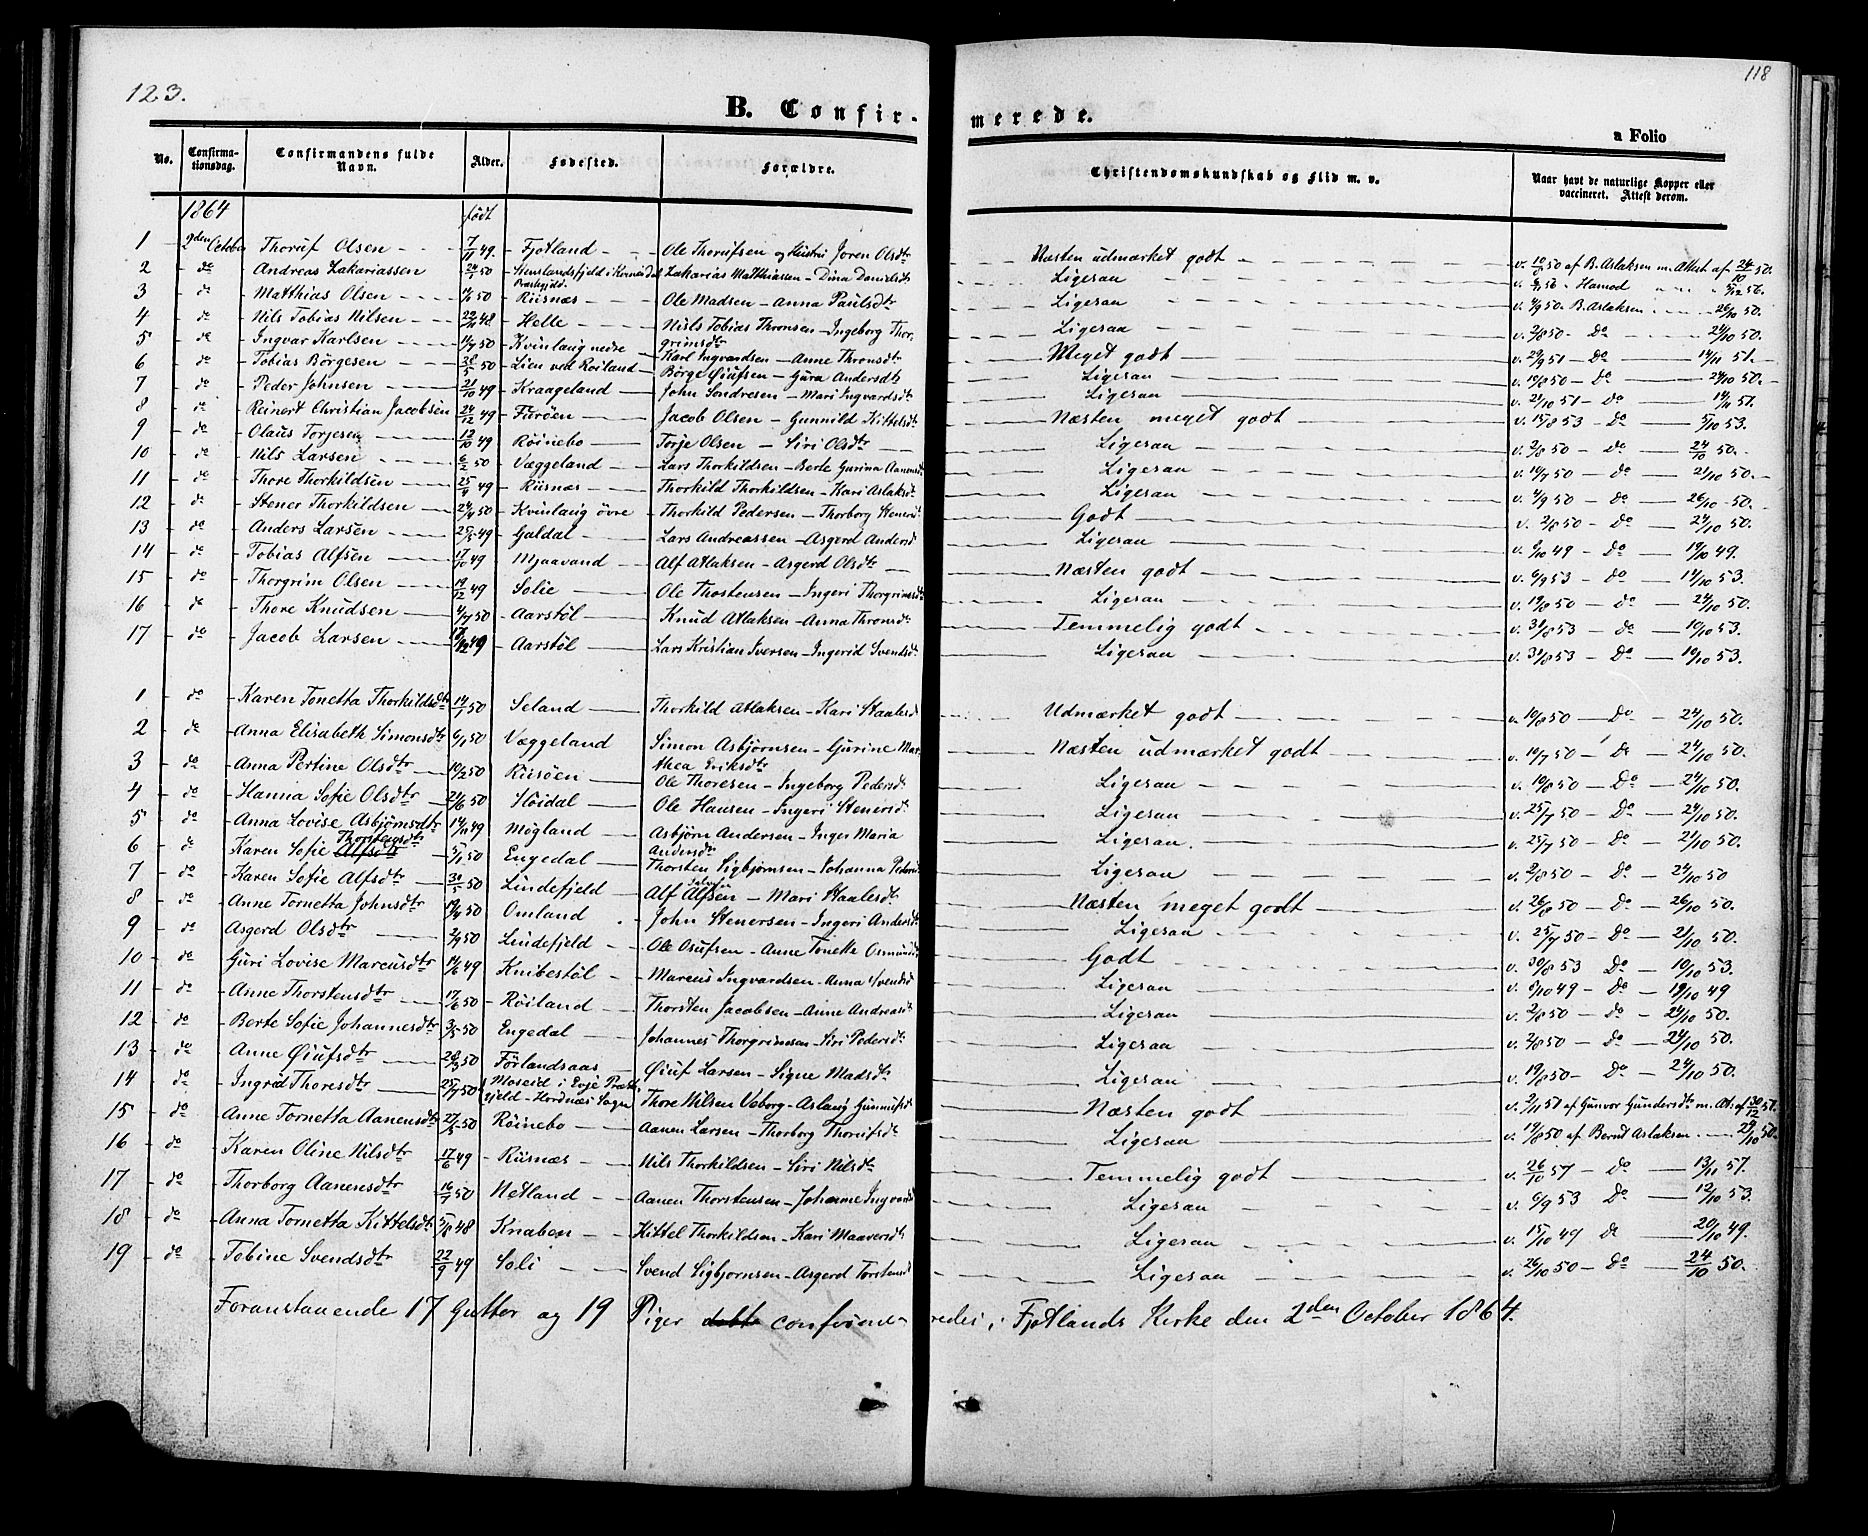 123.
118
B. Confirmerede.
a Folio
No. Confirmationsdag. Confirmandens fulde Navn. Alder. Fødested. Forældre. Christendomskundskab og Flid m. v. Naar havt de naturlige Kopper eller vaccineret. Attest derom.
1864 født
1 2den October Thoruf Olsen 7/11 49. Fjotland Ole Thorufsen og Hustru Joren Olsdtr Næsten udmærket godt v. 10/8 50 af B. Aslaksen m. Attest af 24/10 50.
2 do Andreas Zakariassen 24/1 50 i Præstegjeld. Zakarias Matthiassen - Dina Danielsdtr Ligesaa Hamod 56.
3 do Matthias Olsen 50 Riisnæs Ole Madsen - Anna Paulsdtr Ligesaa v. 4/9 50. B. Aslaksen 26/10 50.
4 do Nils Tobias Nilsen 22/11 48 Helle Nisls Tobias Thronsen - Ingeborg Thorgrimsdtr Ligesaa v. 2/8 50 - Do 24/10 50.
5 do Ingvar Karlsen 4/7 50 Kvinlaug nedre Karl Ingvardsen - Anne Thronsdtr Meget godt v. 29/9 51 - Do 14/11 51.
6 do Tobias Börgesen 50 Lien ved Röiland Börge Øiufsen - Gura Andersdtr Ligesaa v. 19/8 50 - Do 24/10 50.
7 do Peder Johnsen 21/10 49 Kraageland John Sondresen - Mari Ingvardsdtr Ligesaa v. 2/10 51 - Do 14/11 51.
8 do Reinert Christian Jacobsen 24/12 49 Furöen Jacob Olsen - Gunnild Kittelsdtr Næsten meget godt v. 15/8 53 - Do 5/10 53.
9 do Olaus Torjesen 12/10 49 Röinebo Torje Olsen - Siri Olsdtr Ligesaa v. 2/8 50 - do 24/10 50.
10 do Nils Larsen 6/2 50 Væggeland Lars Thorkildsen - Berte Gurina Aanensdtr Ligesaa v. 19/7 50 - do 21/10 50.
11 do Thore Thorkildsen 49 Riisnæs Thorkild Thorkildsen - Kari Aslaksdtr Ligesaa v. 4/9 50 - do 26/10 50.
12 do Stener Thorkildsen 24/4 50 Kvinlaug övre Thorkild Pedersen - Thorborg Stenersdtr Godt v. 2/8 50 - do 24/10 50.
13 do Anders Larsen 49 Galdal Lars Andreassen - Asgerd Andersd Ligesaa v. 8/10 49 - Do 19/10 49.
14 do Tobias Alfsen 17/10 49 Mjaavand Alf Atlaksen - Asgerd Olsdtr Næsten godt v. 6/9 53 - do 14/10 53.
15 do Thorgrim Olsen 19/12 49 Solie Ole Thorstensen - Ingeri Thorgrimsdtr Ligesaa v. 19/8 50 - do 24/10 50.
16 do Thore Knudsen 4/7 50 Aarstöl Knud Atlaksen - Anna Thronsdtr Temmelig godt v. 31/8 53 - do 10/10 53.
17 do Jacob Larsen 49 Aarstöl Lars Kristian Iversen - Ingerid Svendsdtr Ligesaa v. 31/8 53 - Do 10/10 53.
1 do Karen Tonetta Thorkildsdtr 14/1 50 Seland Thorkild Atlaksen - Kari Staalesd Udmærket godt v. 19/8 50 - Do 24/10 50.
2 do Anna Elisabeth Simonsdtr 6/1 50 Væggeland Simon Asbjörnsen - Gurine Marthea Eriksdtr Næsten udmærket godt v. 19/7 50 - Do 24/10 50.
3 do Anna Pertine Olsdtr 19/2 50 Riisöen Ole Thoresen - Ingeborg Pedersdtr Ligesaa v. 19/8 50 - Do 24/10 50.
4 do Hanna Sofie Olsdtr 50 Höidal Ole Hansen - Ingeri Stenersdtr Ligesaa v. 25/7 50 - Do 24/10 50.
5 do Anna Lovise Asbjörnsdtr 14/11 49 Mögland Asbjörn Andersen - Inger Maria Andersdtr Ligesaa. v. 25/7 50 - Do 21/10 50.
6 do Karen Sofie Alfsdtr Thorstensdtr 5/1 50 Engedal Thorsten Sigbjörnsen - Johanna Pedersd Ligesaa v. 2/8 50 - do 24/10 50
7 do Karen Sofie Alfsdtr 30/5 50 Lindefjeld Alf Alfsen - Mari Staalesdtr Næsten meget godt v. 26/8 50 - Do 26/10 50.
8 do Anne Tornetta Johnsdtr 19/4 50 Omland John Stenersen - Ingeri Andersdtr Ligesaa v. 25/7 50 - Do 21/10 50.
9 do Asgerd Olsdtr 2/9 50 Lindefjeld Ole Osufsen - Anne Tonette Osmundsd Godt v. 30/8 53 Do 10/10 53.
10 do Guri Lovise Marcusdtr 14/6 49 Knibestöl Marcus Ingvardsen - Anna Svendsd Ligesaa v. 8/10 49 - Do 19/10 49
11 do Anne Thorstensdtr 17/6 50 Röiland Thorsten Jacobsen - Anne Andreasdtr Ligesaa v. 2/8 50 - do 24/10 50.
12 do Berte Sofie Johannesdtr 3/5 50 Engedal Johannes Thorgrimsen - Siri Pedersdtr Ligesaa v. 2/8 50 - do 24/10 50.
13 do Anne Øiufsdtr 28/3 50 Förlandsaas Øiuf Larsen - Signe Madsdtr Ligesaa v. 19/8 50 - Do 24/10 50.
14 do Ingrid Thoresdtr 25/7 50 Moseid i Evje Præstegjeld - Hordnæs Sogn Thore Nilsen Veborg - Aslaug Gunnufsdtr Næsten godt v. 2/11 50 af Gunvor Gundersdtr m. At. af 30/12 50.
15 do Anne Tornetta Aanensdtr 27/5 50 Röinebo Aanen Larsen - Thorborg Thorufsdtr Ligesaa v. 19/8 50 af Bernt Aslaksen 24/10 50.
16 do Karen Oline Nilsdtr 17/6 49 Riisnæs Nils Thorkildsen - Siri Nilsdtr Temmelig godt v. 26/10 57 - Do 13/11 57.
17 do Thorborg Aanensdtr 16/7 50 Netland Aanen Thorstensen - Johanne Ingvardsd Ligesaa v. 6/9 53 Do 12/10 53.
18 do Anna Tornetta Kittelsdtr 5/8 48 Knaben Kittel Thorkildsen - Kari Maaversdtr Ligesaa v. 15/10 49 do 20/10 49.
19 do Tobine Svendsdtr 22/9 49 Soli Svend Sigbjornsen - Asgerd Torstensd Ligesaa v. 26/10 50 - Do 24/10 50.
Foranstaaende 17 Gutter og 19 Piger confirmeredes i Fjotlands Kirke den 2den October 1864.